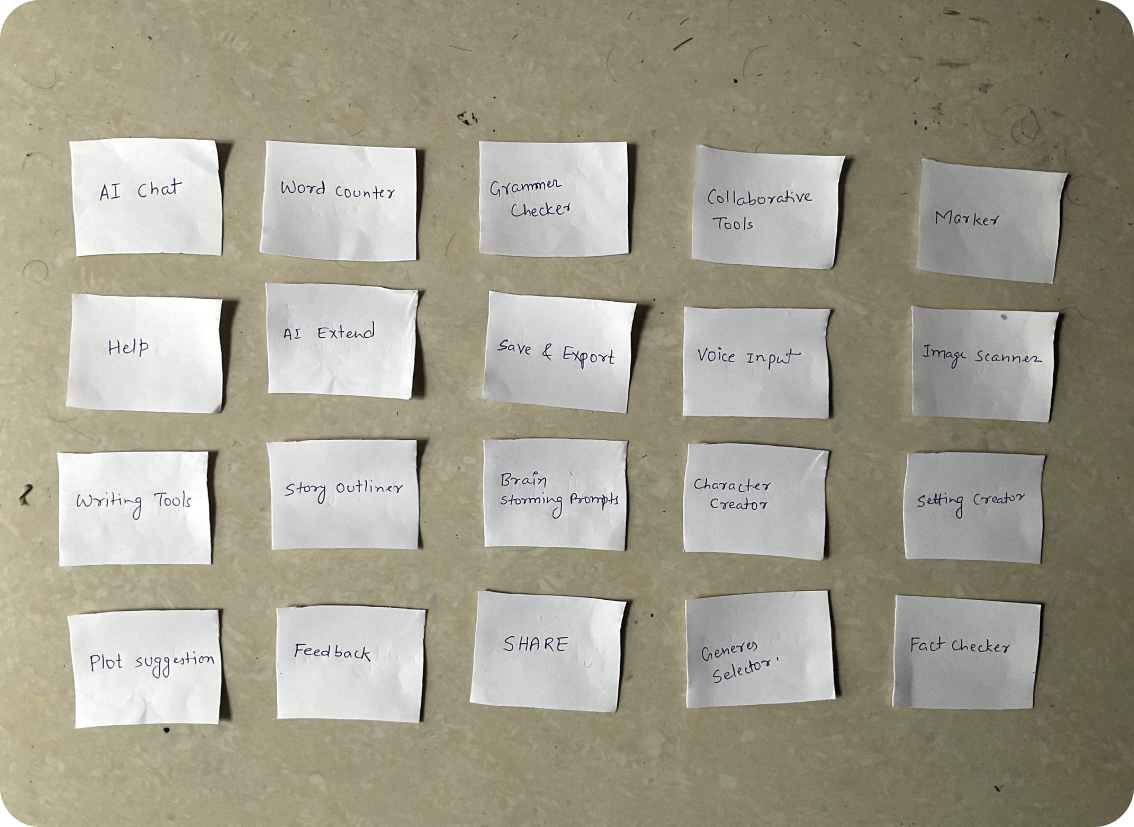 AI Chat
Word counter
Grammer
Checker
Collaborative
Tools
Marker
Help
AI Extend
Save & Export
Voice Input
Image Scanner
Writing Tools
Story Outliner
Brain
Storming Prompts
Character
Creator
Setting Creator
Plot suggestion
Feedback
SHARE
Generes
Selector
Fact Checker